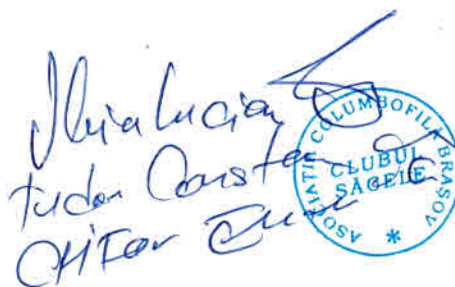 Ilia Lucian
Tudor Constan
CHIFOR
ASOCIATIA COLUMBOFILA BRASOV
CLUBUL
SĂGELE
*